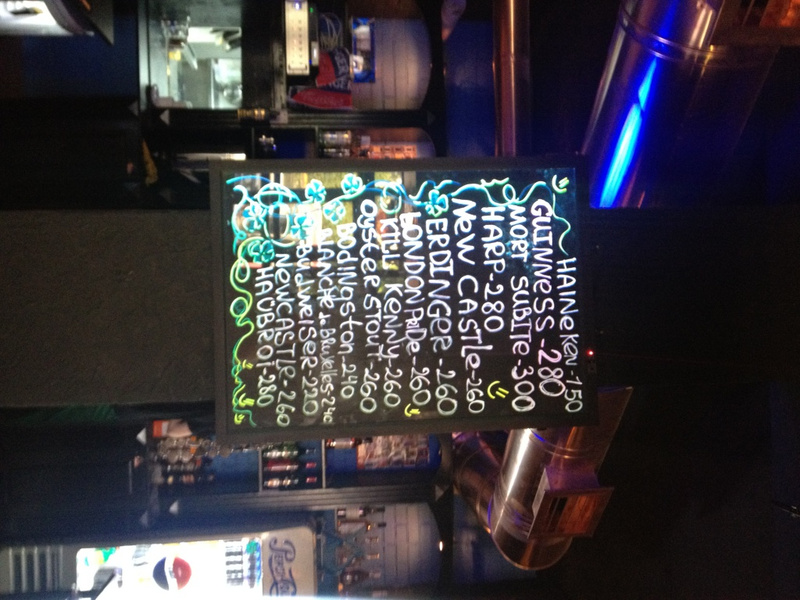 HAINEKEN-150
GUINNESS-280
MORT SUBITE-300
HARP-280
NEW CASTLE-260
ERDINGER-260
LONDON PRIDE-260
KILL KENNY-260
OYSTER STOUT-260
BODINGSTON-240
BLANCHE de BRUXELLES 240
BUDWEISER 220
NEWCASTLE-260
HACKBROI-280
Pepsi